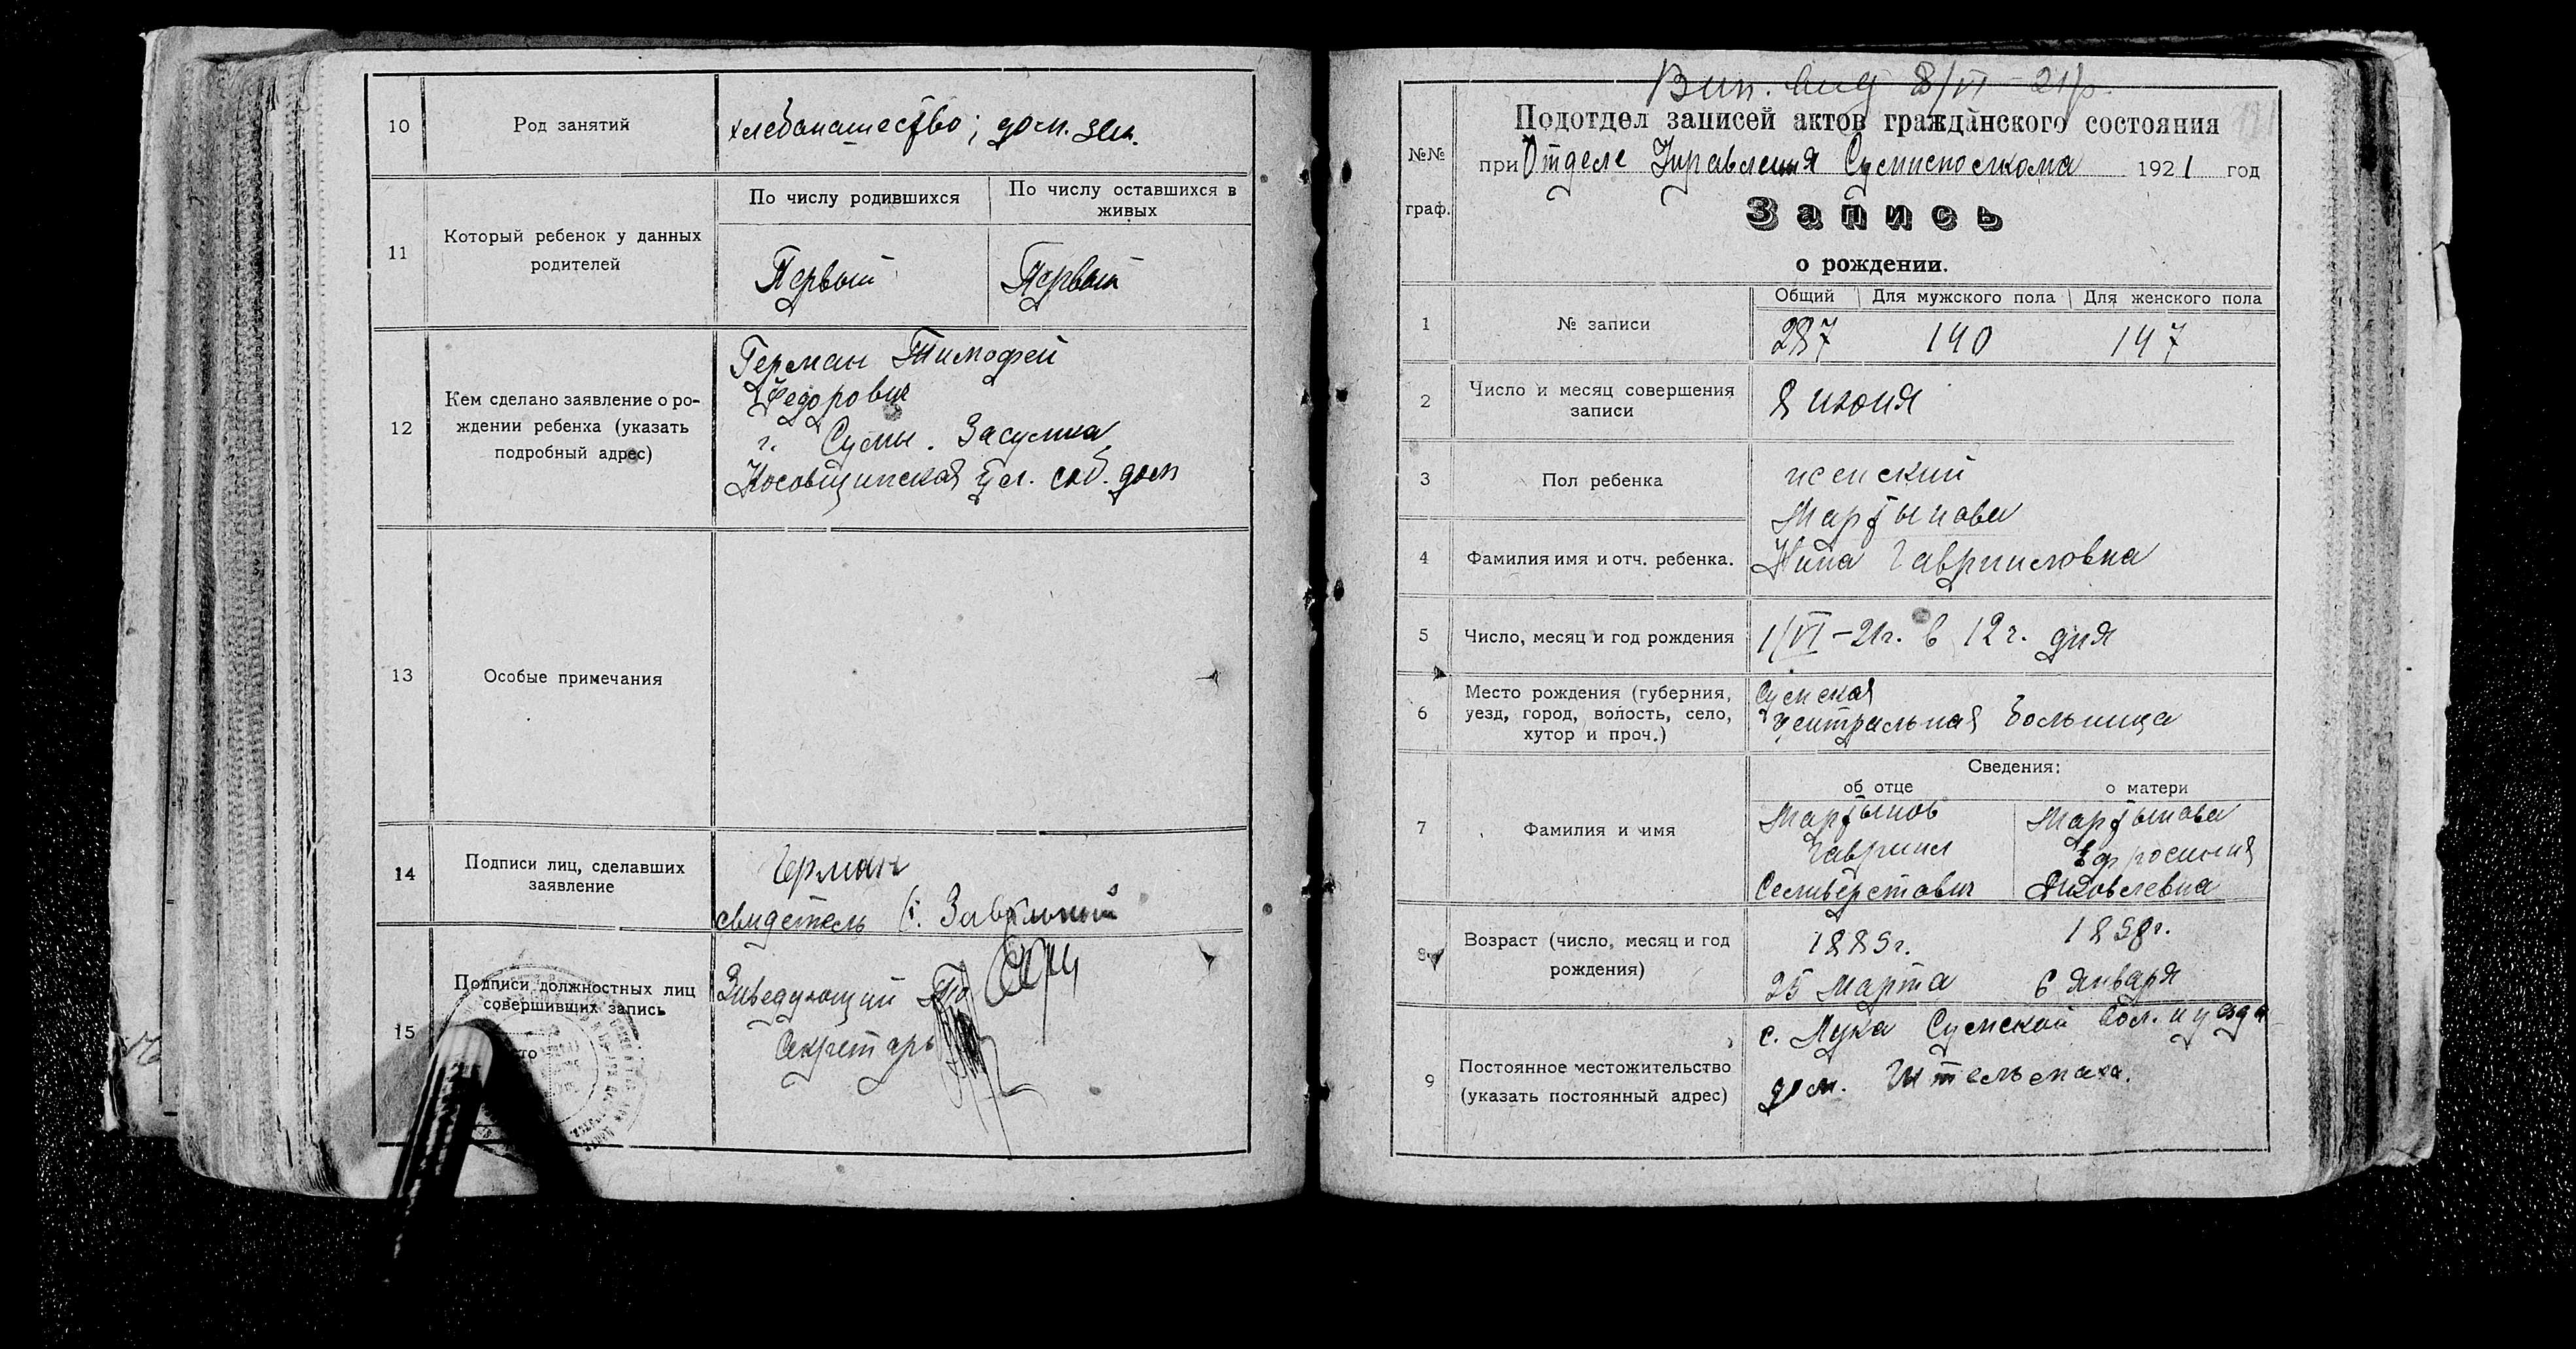 10
Род занятий
хлебопашество; дом. зем.
11
Который ребенок у данных
родителей
По числу родившихся
По числу оставшихся в
живых
Первый
Первый
12
Кем сделано заявление о ро-
ждении ребенка (указать
подробный адрес)
Герман Тимофей
Федорович
г. Сумы. Засумка
Косовщинская ул. соб. дом
13
Особые примечания
14
Подписи лиц, сделавших
заявление
Герман
свидетель
15
Подписи должностных лиц
совершивших запись
Заведующий
Секретарь
8/VI - 21
№№
граф.
Подотдел записей актов гражданского состояния
при Отделе Управления Сумисполкома 1921 год
Запись
о рождении.
1
№ записи
Общий Для мужского пола Для женского пола
287 140 147
2
Число и месяц совершения
записи
8 июня
3
Пол ребенка
женский
4
Фамилия имя и отч. ребенка.
Мартынова
Нина Гаврииловна
5
Число, месяц и год рождения
1/VI - 21 г. в 12 ч. дня
6
Место рождения (губерния,
уезд, город, волость, село,
хутор и проч.)
Сумская
центральная больница
Сведения:
об отце
о матери
7
Фамилия и имя
Мартынов
Гавриил
Селиверстович
Мартынова
Ефросиния
Яковлевна
8
Возраст (число, месяц и год
рождения)
1885 г.
25 Марта
1898 г.
6 Января
9
Постоянное местожительство
(указать постоянный адрес)
с. Лука Сумской вол. и уезда
дом.